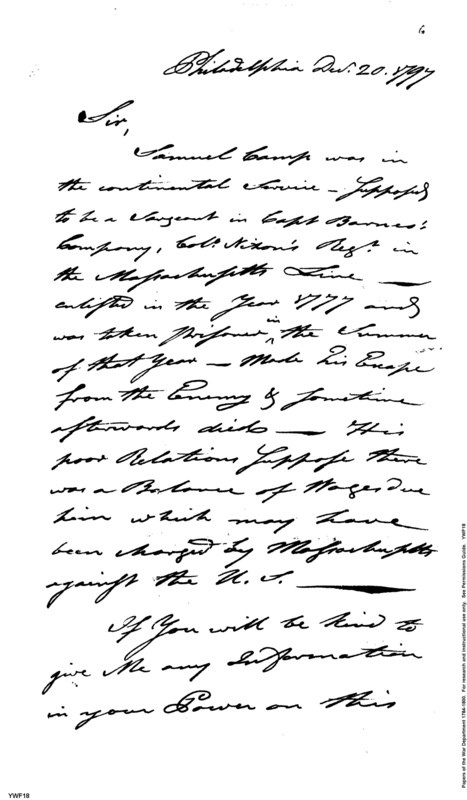 6
Philadelphia Decr. 20. 1797
Sir,
Samuel Camp was in
the continental Service – Supposed
to be a Sargeant in Capt Barnes's
Company, Colo. Nixon's Regt. in
the Massachusetts Line —
enlisted in the Year 1777 and
was taken prisoner in the Summer
of that Year – Made His Escape
from the Enemy & sometime
afterwards died – His
poor Relations Suppose there
was a Balance of Wages due
him which may have
been charged by Massachusetts
against the U. S. —
If You will be kind to
give Me any Information
in your Power on this
YWF18
Papers of the War Department 1784-1800. For research and instructional use only. See Permissions Guide. YWF18